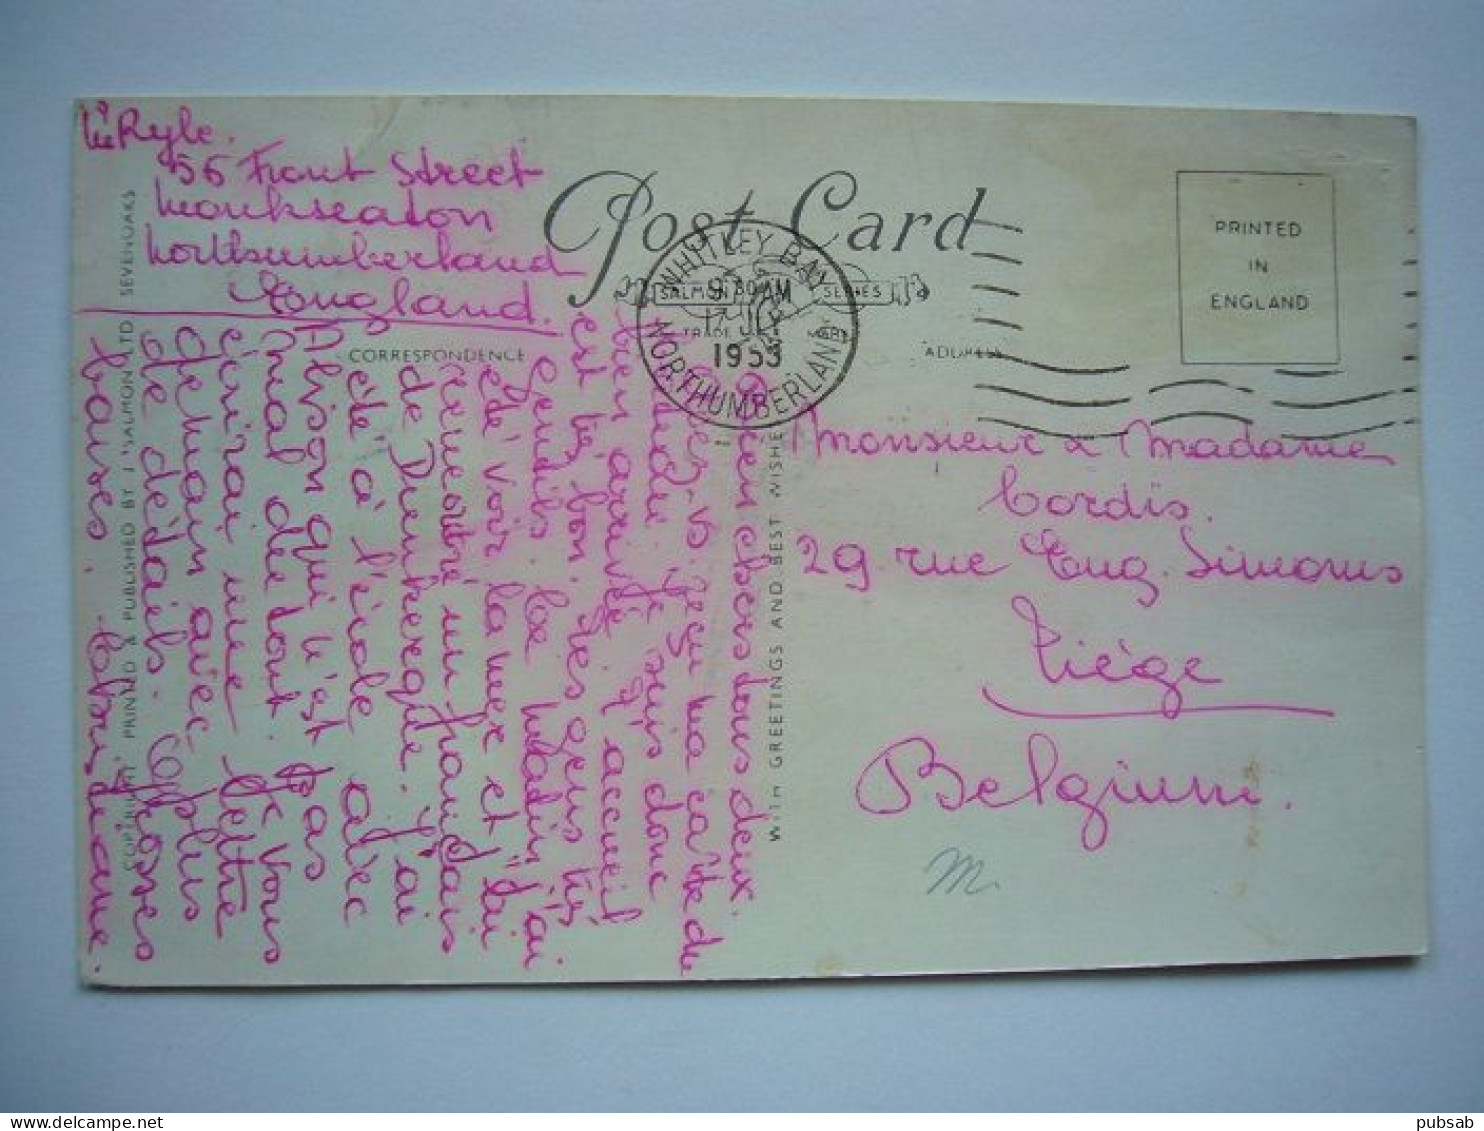 Ryle.
56 Front Street
Monkseaton
Northumberland
England.
Post Card
SALMON SERIES
TRADE MARK
WHITLEY BAY
NORTHUMBERLAND
9 30 AM
17
1953
CORRESPONDENCE
ADDRESS
PRINTED
IN
ENGLAND
Bien chers tous deux.
Avez-vs reçu ma carte de
Je suis donc
bien arrivé. L'accueil
est très bon. Les gens très
gentils. Ce matin j'ai
été voir la mer et
rencontré un français
de Dunkerque. J'ai
été à l'école avec
Alison qui n'est pas
mal du tout. Je vous
écrirai une lettre
demain avec plus
de détails. Grosses
baises.
COPYRIGHT PRINTED & PUBLISHED BY J. SALMON LTD SEVENOAKS
WITH GREETINGS AND BEST WISHE
Monsieur & Madame
Cordis.
29 rue Eug. Simonis
Liège
Belgium.
m.
pubsab